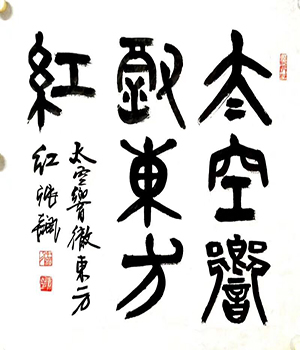 太空響
徹東方
紅
太空響徹東方
红